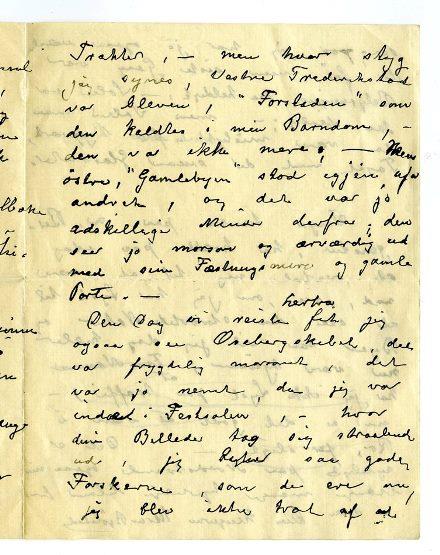 Trakter, – men hvor styg
jeg synes, Vestre Frederikstad
var bleven, "Forstaden" som
den kaldtes i min Barndom, –
den va ikke mere; – Mens
östre, "Gamlebyen" stod igjen ufor
andret, og det var jo
adskillige Minder derfra; den
ser jo morsom og ærværdig ud
med sine Fæstnings mure og gamle
Porte. –
Den Dag vi reiste herfra fik jeg
ogsaa see Osebergskibet, det
var frygtelig morsomt, det
var jo nemt, da jeg var
inde i Festsalen, – hvor
dine Billeder tog sig straalende
ud, jeg saa gode
Forskerne, som de ere nu,
jeg blev ikke træt af at